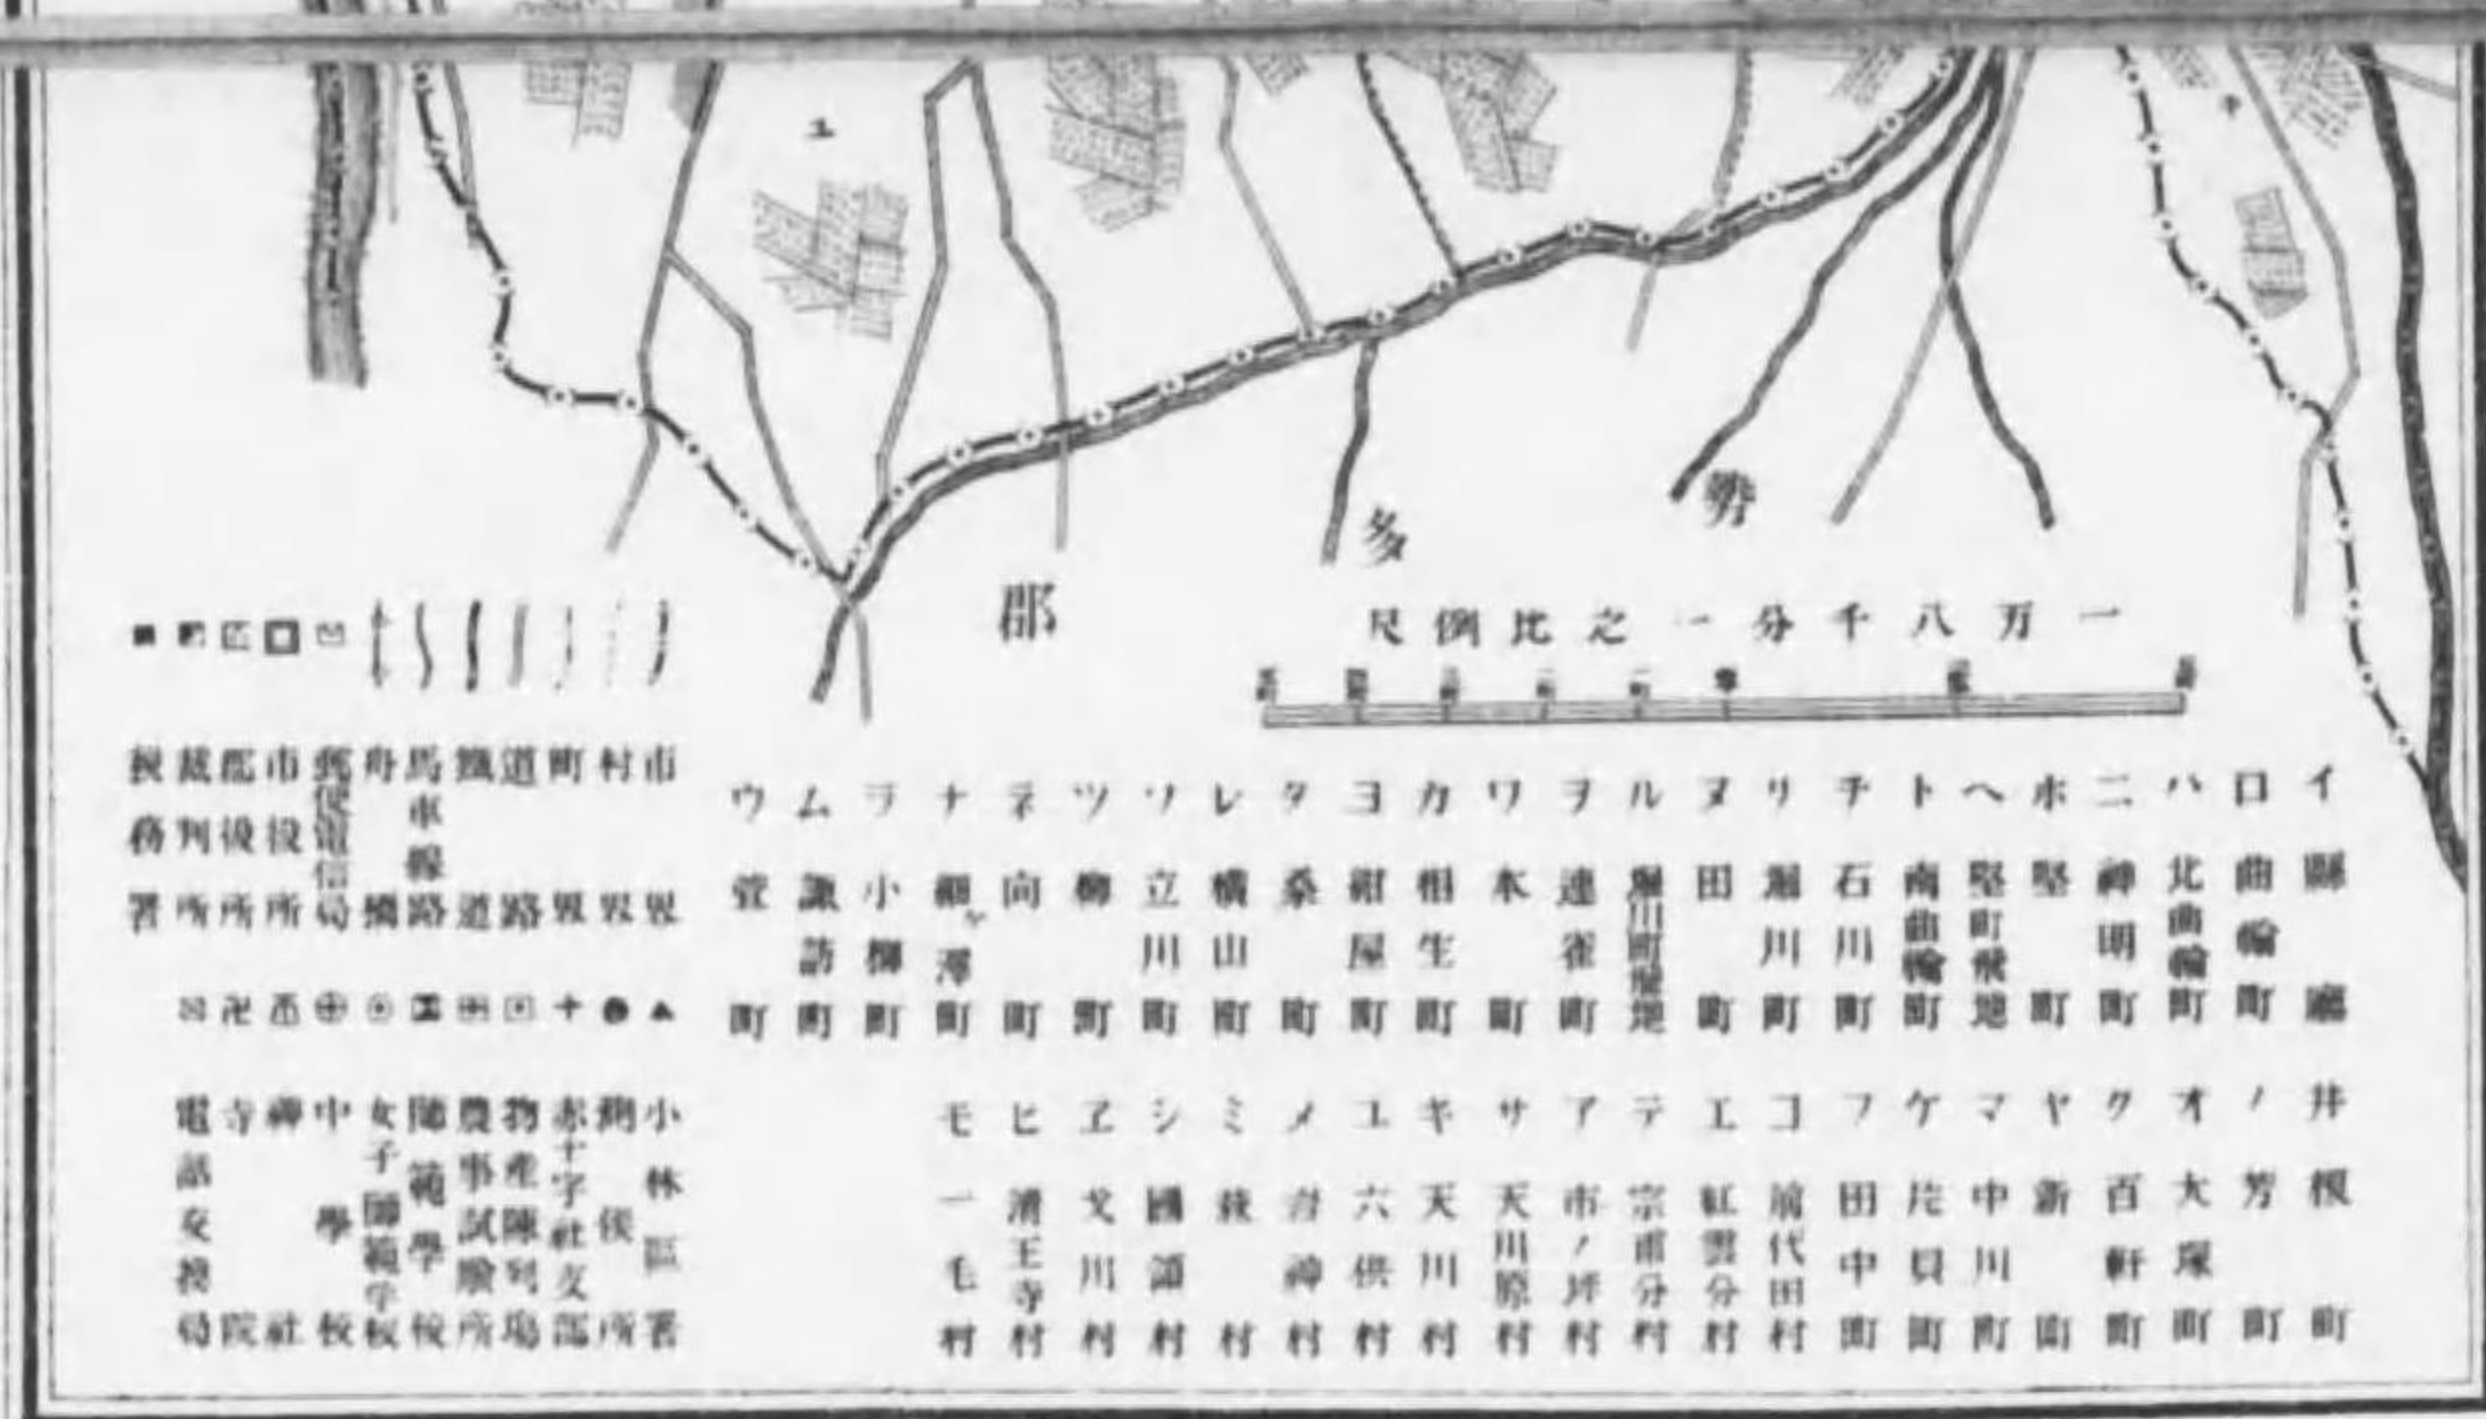 勢
多
郡
一万八千分一之比例尺
イ 縣廰
ロ 曲輪町
ハ 北曲輪町
ニ 神明町
ホ 堅町
ヘ 堅町飛地
ト 南曲輪町
チ 石川町
リ 堀川町
ヌ 田町
ル 堀川町飛地
ヲ 連雀町
ワ 本町
カ 相生町
ヨ 紺屋町
タ 桑町
レ 横山町
ソ 立川町
ツ 柳町
ネ 向町
ナ 細ヶ澤町
ラ 小柳町
ム 諏訪町
ウ 萱町
井 榎町
ノ 芳町
オ 大塚町
ク 百軒町
ヤ 新町
マ 中川町
ケ 片貝町
フ 田中町
コ 前代田村
エ 紅雲分村
テ 宗甫分村
ア 市ノ坪村
サ 天川原村
キ 天川村
ユ 六供村
メ 岩神村
ミ 萩村
シ 國領村
ヱ 戈川村
ヒ 清王寺村
モ 一毛村
市界
村界
町界
道路
鐵道
馬車線路
舟橋
郵便電信局
市役所
郡役所
裁判所
税務署
小林區署
測候所
赤十字社支部
物産陳列場
農事試驗所
師範學校
女子師範学校
中學校
神社
寺院
電話交換局